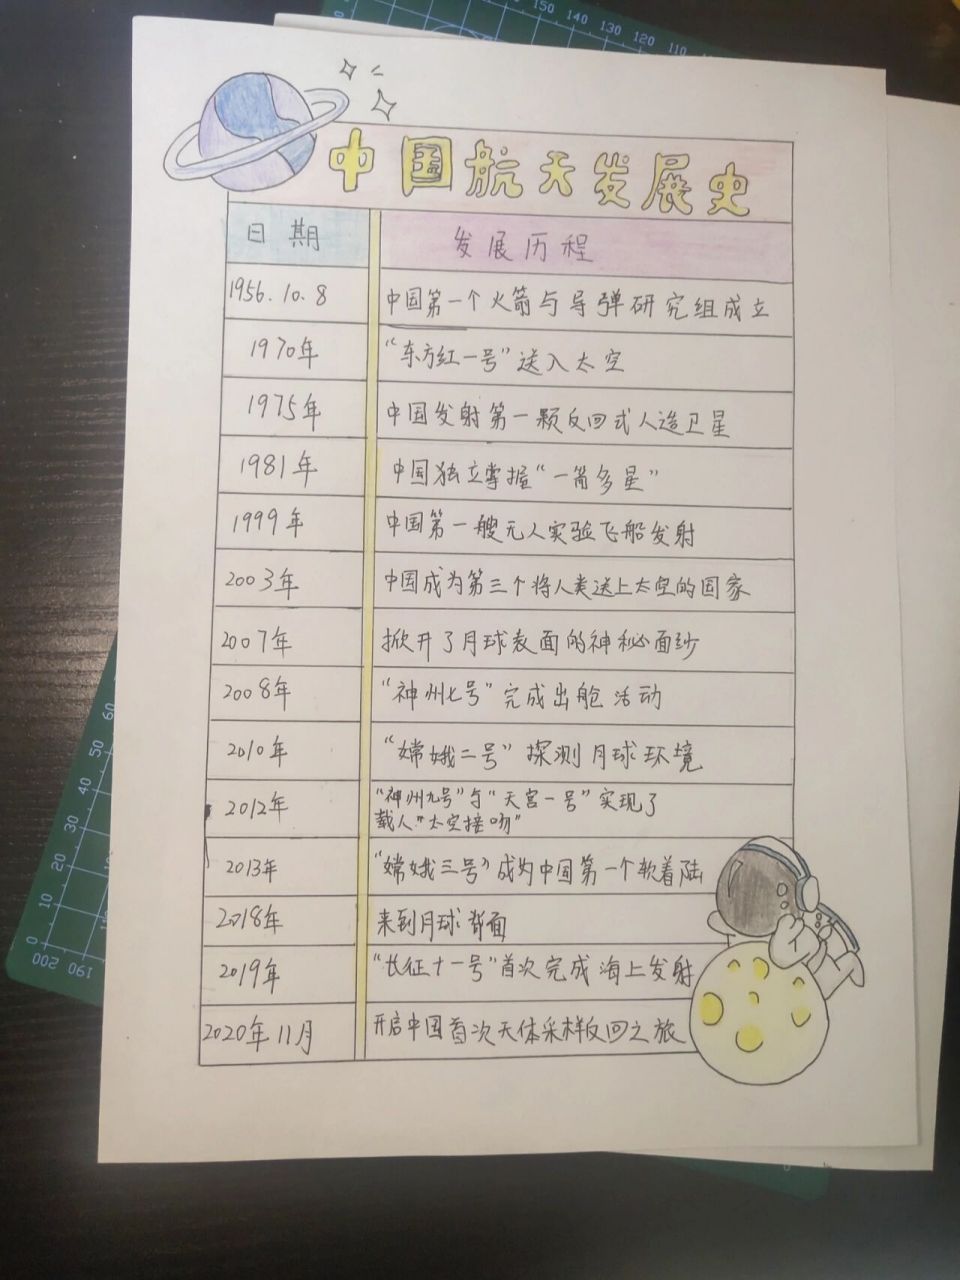 中国航天发展史
日期 发展历程
1956.10.8 中国第一个火箭与导弹研究组成立
1970年 “东方红一号”送入太空
1975年 中国发射第一颗反回式人造卫星
1981年 中国独立掌握“一箭多星”
1999年 中国第一艘无人实验飞船发射
2003年 中国成为第三个将人类送上太空的国家
2007年 掀开了月球表面的神秘面纱
2008年 “神州七号”完成出舱活动
2010年 “嫦娥二号”探测月球环境
2012年 “神州九号”与“天宫一号”实现了
载人“太空接吻”
2013年 “嫦娥三号”成为中国第一个软着陆
2018年 来到月球背面
2019年 “长征十一号”首次完成海上发射
2020年11月 开启中国首次天体采样反回之旅
150 140 130 120 110
60
50
40
30
20
10
0
200 190